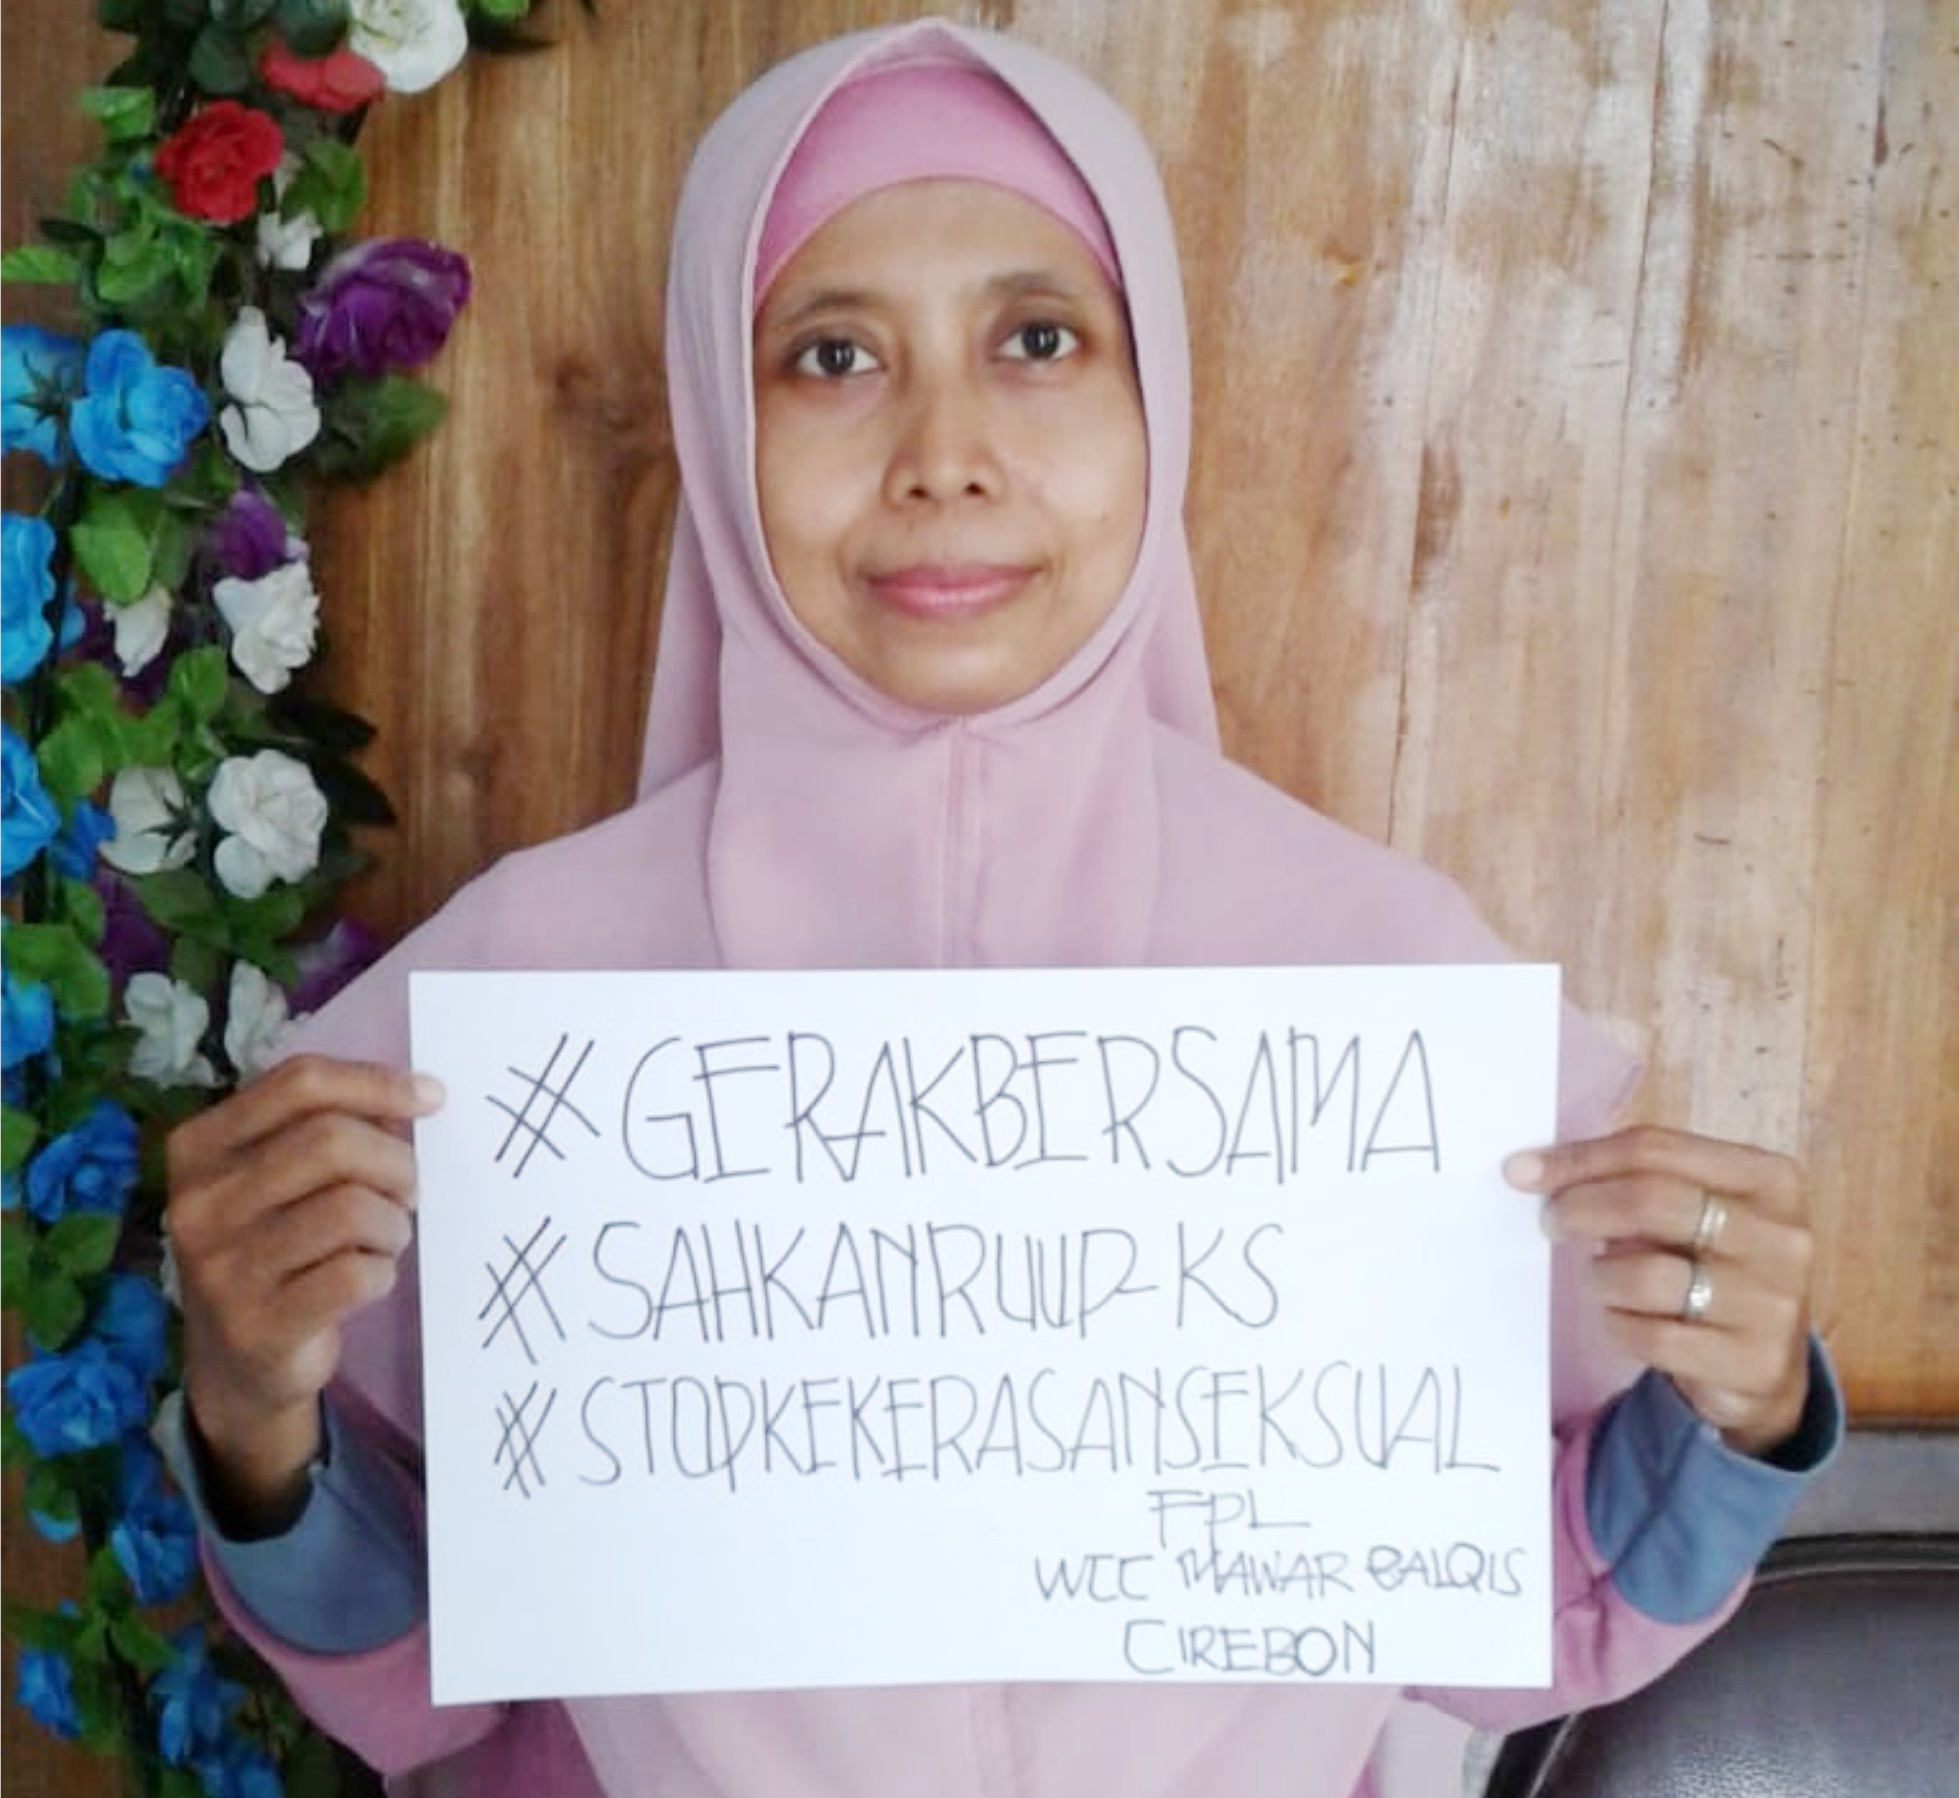 #GERAKBERSAMA
#SAHKANRUUP-KS
#STOPKEKERASANSEKSUAL
FPL
WCC MAWAR BALQIS
CIREBON